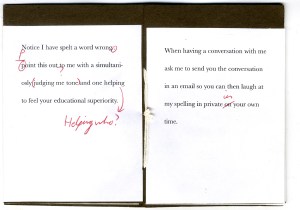 Notice I have spelt a word wrong
point this out to me with a simultani-
osly judging me tone and one helping
to feel your educational superiority.
Helping who?
When having a conversation with me
ask me to send you the conversation
in an email so you can then laugh at
in
my spelling in private on your own
time.